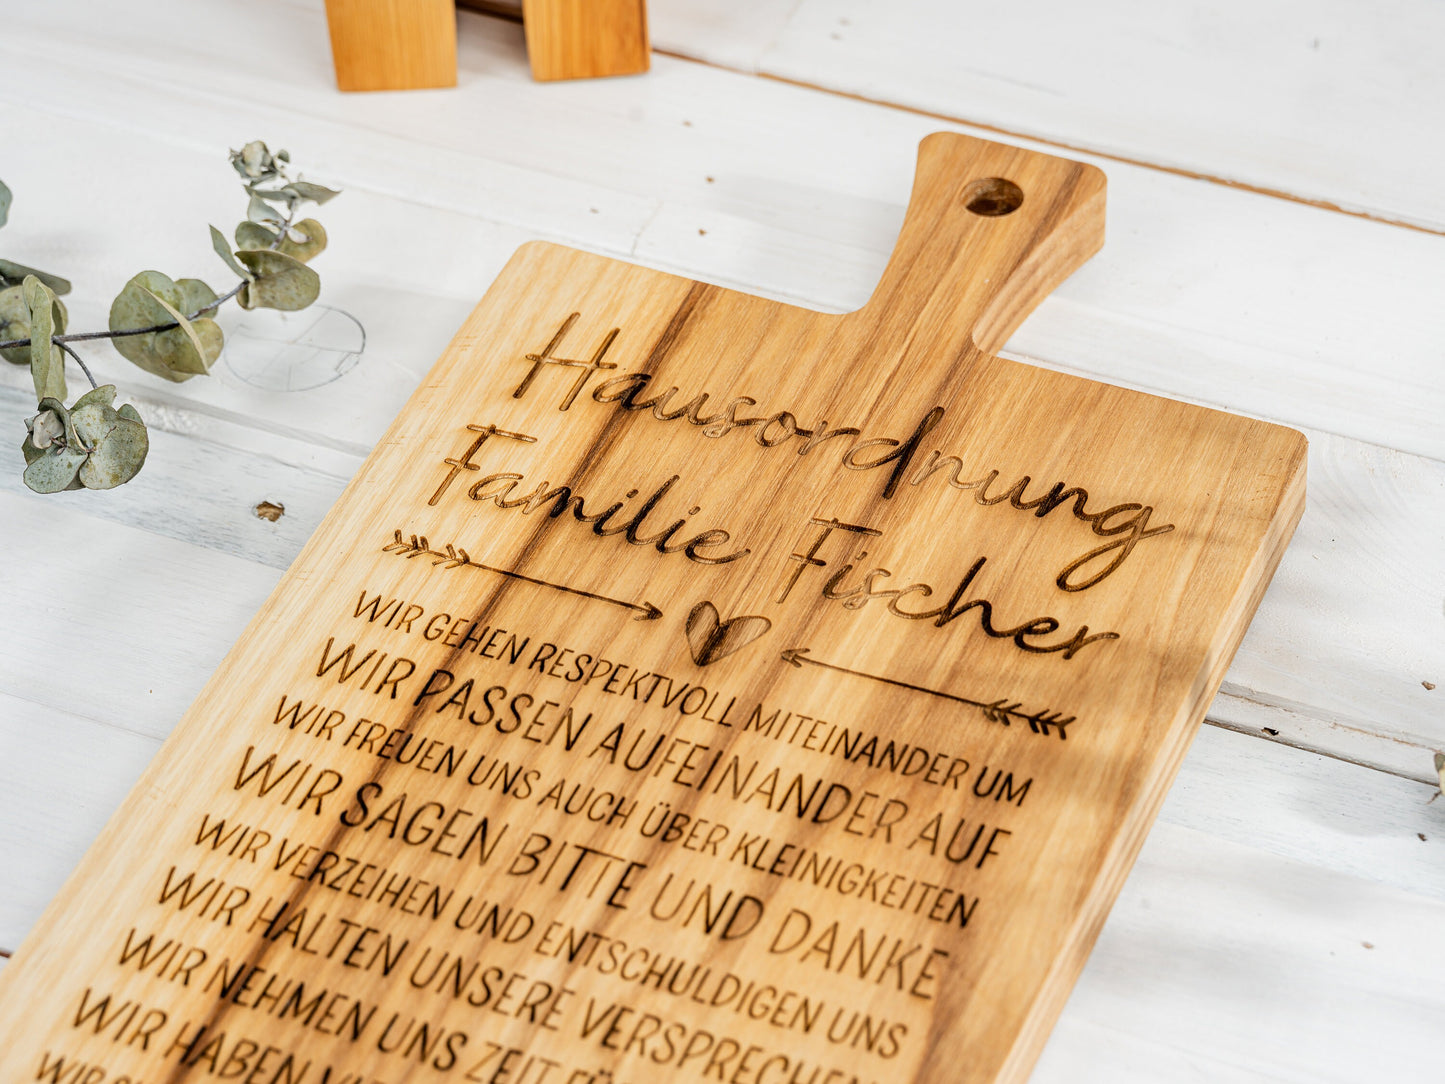 Hausordnung
Familie Fischer
WIR GEHEN RESPEKTVOLL MITEINANDER UM
WIR PASSEN AUFEINANDER AUF
WIR FREUEN UNS AUCH ÜBER KLEINIGKEITEN
WIR SAGEN BITTE UND DANKE
WIR VERZEIHEN UND ENTSCHULDIGEN UNS
WIR HALTEN UNSERE VERSPRECHEN
WIR NEHMEN UNS ZEIT
WIR HABEN
WIR